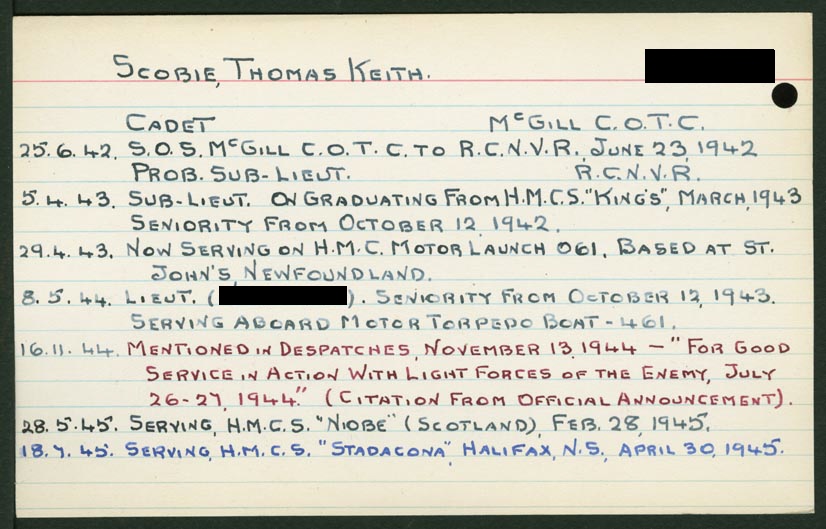 SCOBIE, THOMAS KEITH.
CADET McGILL C.O.T.C.
25.6.42. S.O.S. McGILL C.O.T.C. TO R.C.N.V.R., JUNE 23, 1942
PROB. SUB-LIEUT. R.C.N.V.R.
5.4.43. SUB-LIEUT. ON GRADUATING FROM H.M.C.S. "KING'S", MARCH, 1943
SENIORITY FROM OCTOBER 12, 1942.
29.4.43. NOW SERVING ON H.M.C. MOTOR LAUNCH 061, BASED AT ST.
JOHN'S, NEWFOUNDLAND.
8.5.44. LIEUT. ( ). SENIORITY FROM OCTOBER 12, 1943.
SERVING ABOARD MOTOR TORPEDO BOAT - 461.
16.11.44. MENTIONED IN DESPATCHES, NOVEMBER 13, 1944 - "FOR GOOD
SERVICE IN ACTION WITH LIGHT FORCES OF THE ENEMY, JULY
26-27, 1944." (CITATION FROM OFFICIAL ANNOUNCEMENT).
28.5.45. SERVING, H.M.C.S. "NIOBE" (SCOTLAND), FEB. 28, 1945.
18.7.45. SERVING, H.M.C.S. "STADACONA", HALIFAX, N.S., APRIL 30, 1945.